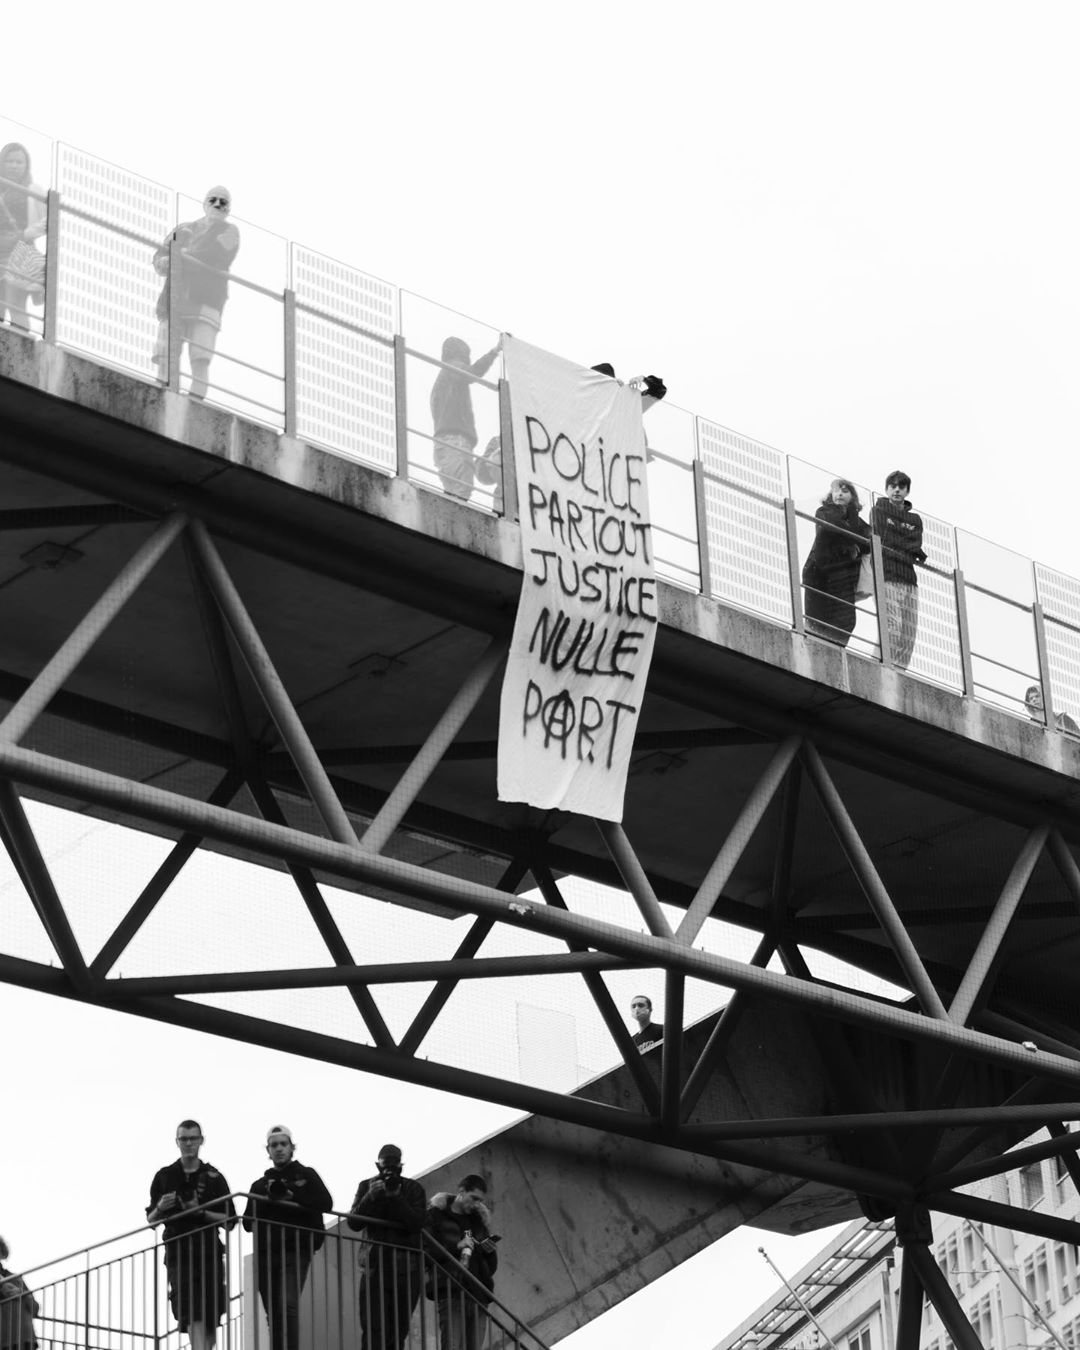 POLiCE
PARTOUT
JUSTiCE
NULLE
PART